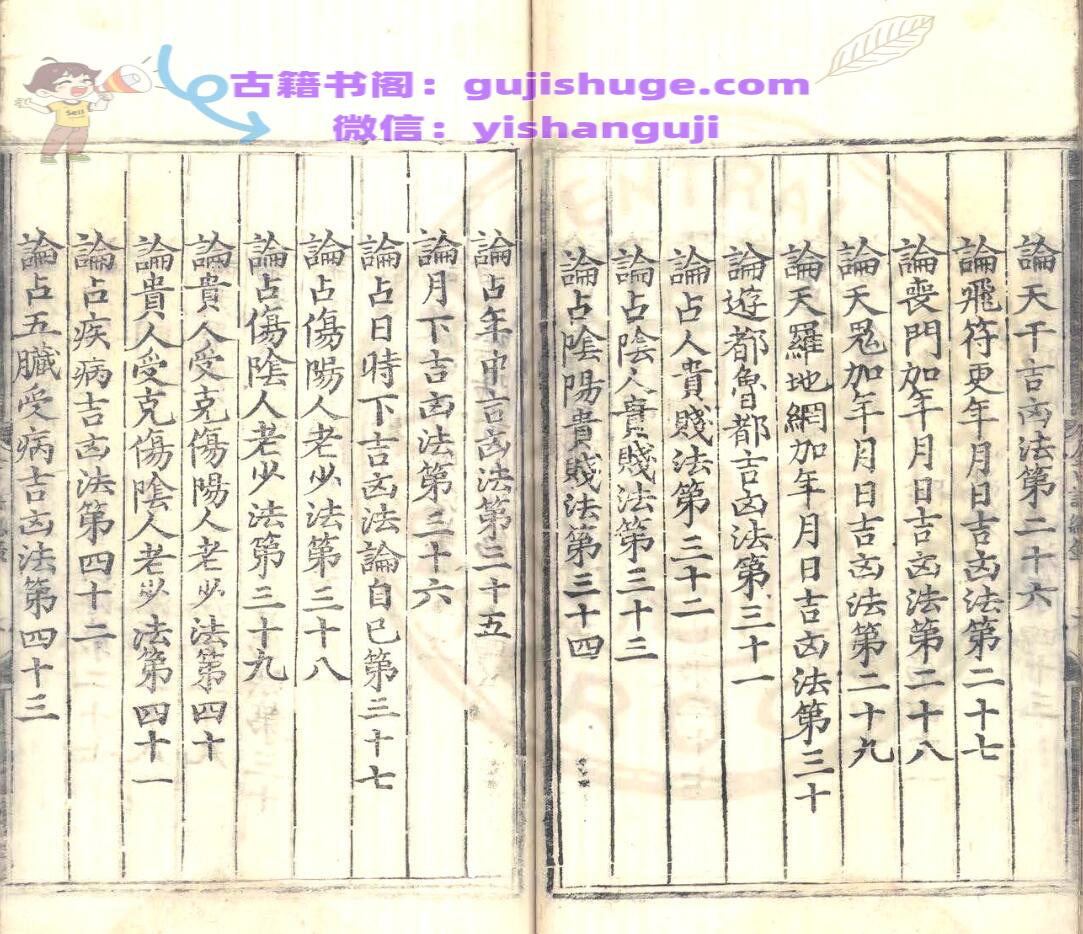 古籍书阁：gujishuge.com
微信：yishanguji
Sell
論天干吉凶法第二十六
論飛符更年月日吉凶法第二十七
論喪門加年月日吉凶法第二十八
論天鬼加年月日吉凶法第二十九
論天羅地網加年月日吉凶法第三十
論遊都魯都吉凶法第三十一
論占人貴賤法第三十二
論占陰人貴賤法第三十三
論占陰陽貴賤法第三十四
論占年中吉凶法第三十五
論月下吉凶法第三十六
論占日時下吉凶法論自己第三十七
論占傷陽人老少法第三十八
論占傷陰人老少法第三十九
論貴人受克傷陽人老少法第四十
論貴人受克傷陰人老少法第四十一
論占疾病吉凶法第四十二
論占五臟受病吉凶法第四十三